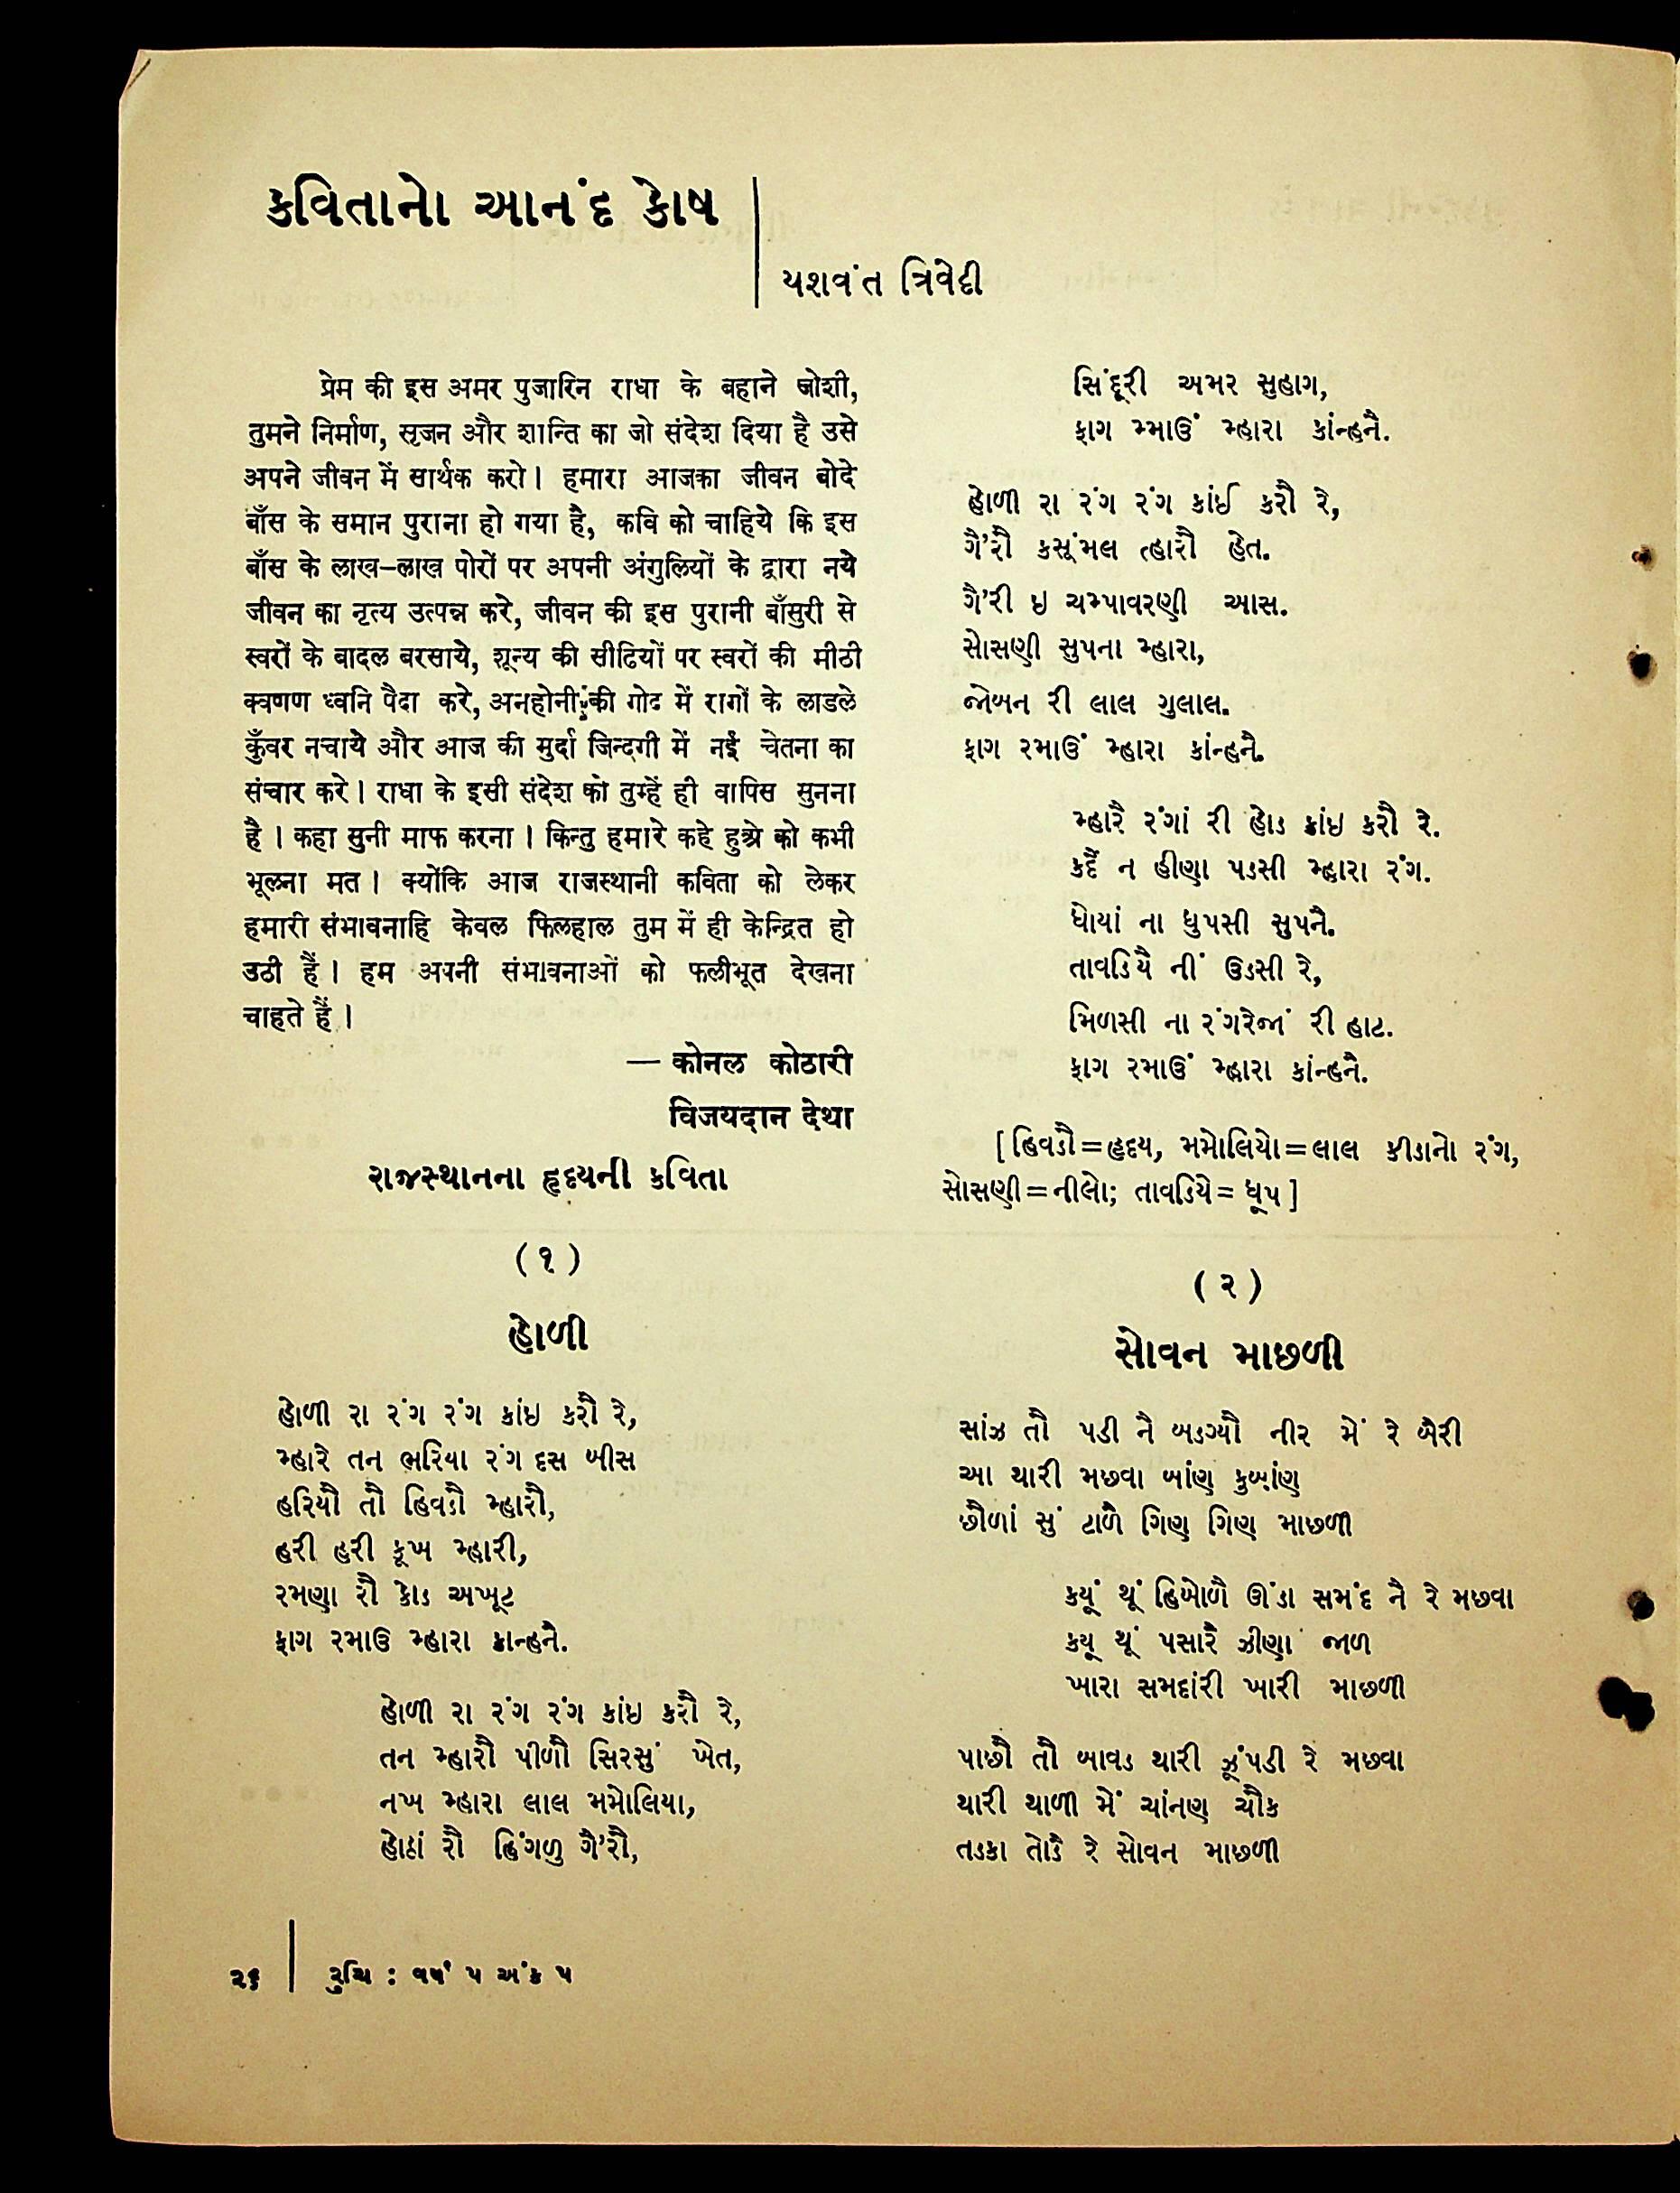 કવિતાનો આનંદ કોષ
યશવંત ત્રિવેદી
प्रेम की इस अमर पुजारिन राधा के बहाने जोशी,
तुमने निर्माण, सृजन और शान्ति का जो संदेश दिया है उसे
अपने जीवन में सार्थक करो। हमारा आजका जीवन बोदे
बाँस के समान पुराना हो गया है, कवि को चाहिये कि इस
बाँस के लाख–लाख पोरों पर अपनी अंगुलियों के द्वारा नये
जीवन का नृत्य उत्पन्न करे, जीवन की इस पुरानी बाँसुरी से
स्वरों के बादल बरसाये, शून्य की सीढियों पर स्वरों की मीठी
क्वणण ध्वनि पैदा करे, अनहोनी की गोद में रागों के लाडले
कुँवर नचाये और आज की मुर्दा जिन्दगी में नई चेतना का
संचार करे। राधा के इसी संदेश को तुम्हें ही वापिस सुनना
है। कहा सुनी माफ करना। किन्तु हमारे कहे हुअे को कभी
भूलना मत। क्योंकि आज राजस्थानी कविता को लेकर
हमारी संभावनाहि केवल फिलहाल तुम में ही केन्द्रित हो
उठी हैं। हम अपनी संभावनाओं को फलीभूत देखना
चाहते हैं।
— कोनल कोठारी
विजयदान देथा
રાજસ્થાનના હૃદયની કવિતા
(૧)
હોળી
હોળી રા રંગ રંગ કાંઇ કરૌ રે,
મ્હારે તન ભરિયા રંગ દસ બીસ
હરિયૌ તૌ હિવડૌ મ્હારૌ,
હરી હરી કૂખ મ્હારી,
રમણા રૌ કોડ અખૂટ
ફાગ રમાઉ મ્હારા કાન્હને.
હોળી રા રંગ રંગ કાંઇ કરૌ રે,
તન મ્હારૌ પીળૌ સિરસું ખેત,
નખ મ્હારા લાલ મમોલિયા,
હોઠાં રૌ હિંગળુ ગૈ'રૌ,
સિંદૂરી અમર સુહાગ,
ફાગ મ્માઉં મ્હારા કાંન્હનૈ.
હોળી રા રંગ રંગ કાંઈ કરૌ રે,
ગૈ'રૌ કસૂંમલ ત્હારૌ હેત.
ગૈ'રી ઇ ચમ્પાવરણી આસ.
સોસણી સુપના મ્હારા,
જોબન રી લાલ ગુલાલ.
ફાગ રમાઉં મ્હારા કાંન્હનૈ.
મ્હારૈ રંગાં રી હોડ કાંઇ કરૌ રે.
કદૈં ન હીણા પડસી મ્હારા રંગ.
ધોયાં ના ધુપસી સુપનૈ.
તાવડિયૈ નીં ઉડસી રે,
મિળસી ના રંગરેજાં રી હાટ.
ફાગ રમાઉં મ્હારા કાંન્હનૈ.
[હિવડૌ=હૃદય, મમોલિયો=લાલ કીડાનો રંગ,
સોસણી=નીલો; તાવડિયે= ધૂપ]
(૨)
સોવન માછળી
સાંઝ તૌ પડી નૈ બડગ્યૌ નીર મેં રે બૈરી
આ થારી મછવા બાંણ કુબાંણ
છૌળાં સું ટાળૈ ગિણ ગિણ માછળી
કયૂં થૂં હિબોળૈ ઊંડા સમંદ નૈ રે મછવા
કયૂ થૂં પસારૈ ઝીણા જાળ
ખારા સમદાંરી ખારી માછળી
પાછૌ તૌ બાવડ થારી ઝૂંપડી રે મછવા
થારી થાળી મેં ચાંનણ ચૌક
તડકા તોડૈ રે સોવન માછળી
૨૬
રુચિ : વર્ષ ૫ અંક ૫